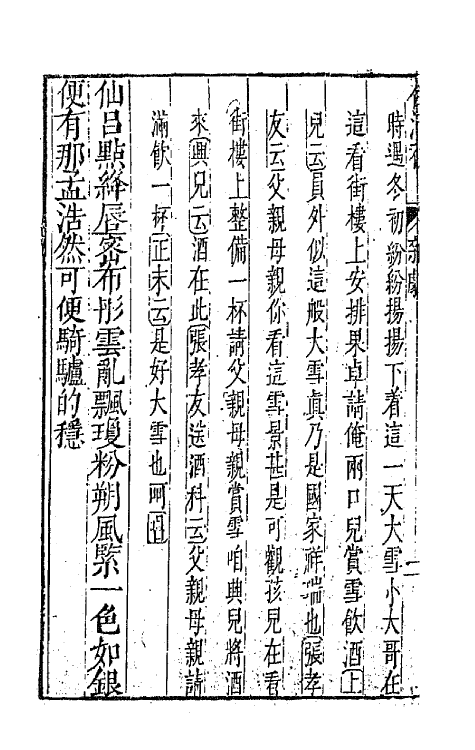 時遇冬初紛紛揚揚下着這一天大雪小大哥在
這看街樓上安排果卓請俺兩口兒賞雪飲酒上
兒云員外似這般大雪真乃是國家祥瑞也張孝
友云父親母親你看這雪景甚是可觀孩兒在看
街樓上整備一杯請父親母親賞雪咱興兒將酒
來興兒云酒在此張孝友送酒科云父親母親請
滿飲一杯正末云是好大雪也呵唱
仙呂點絳唇密布彤雲亂飄瓊粉朔風緊一色如銀
便有那孟浩然可便騎驢的穩